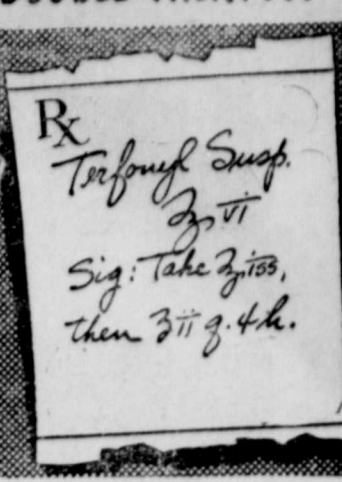 ℞
Terfonyl Susp.
℥ vi
Sig: Take ℥ iss,
then ʒ ii q. 4 h.